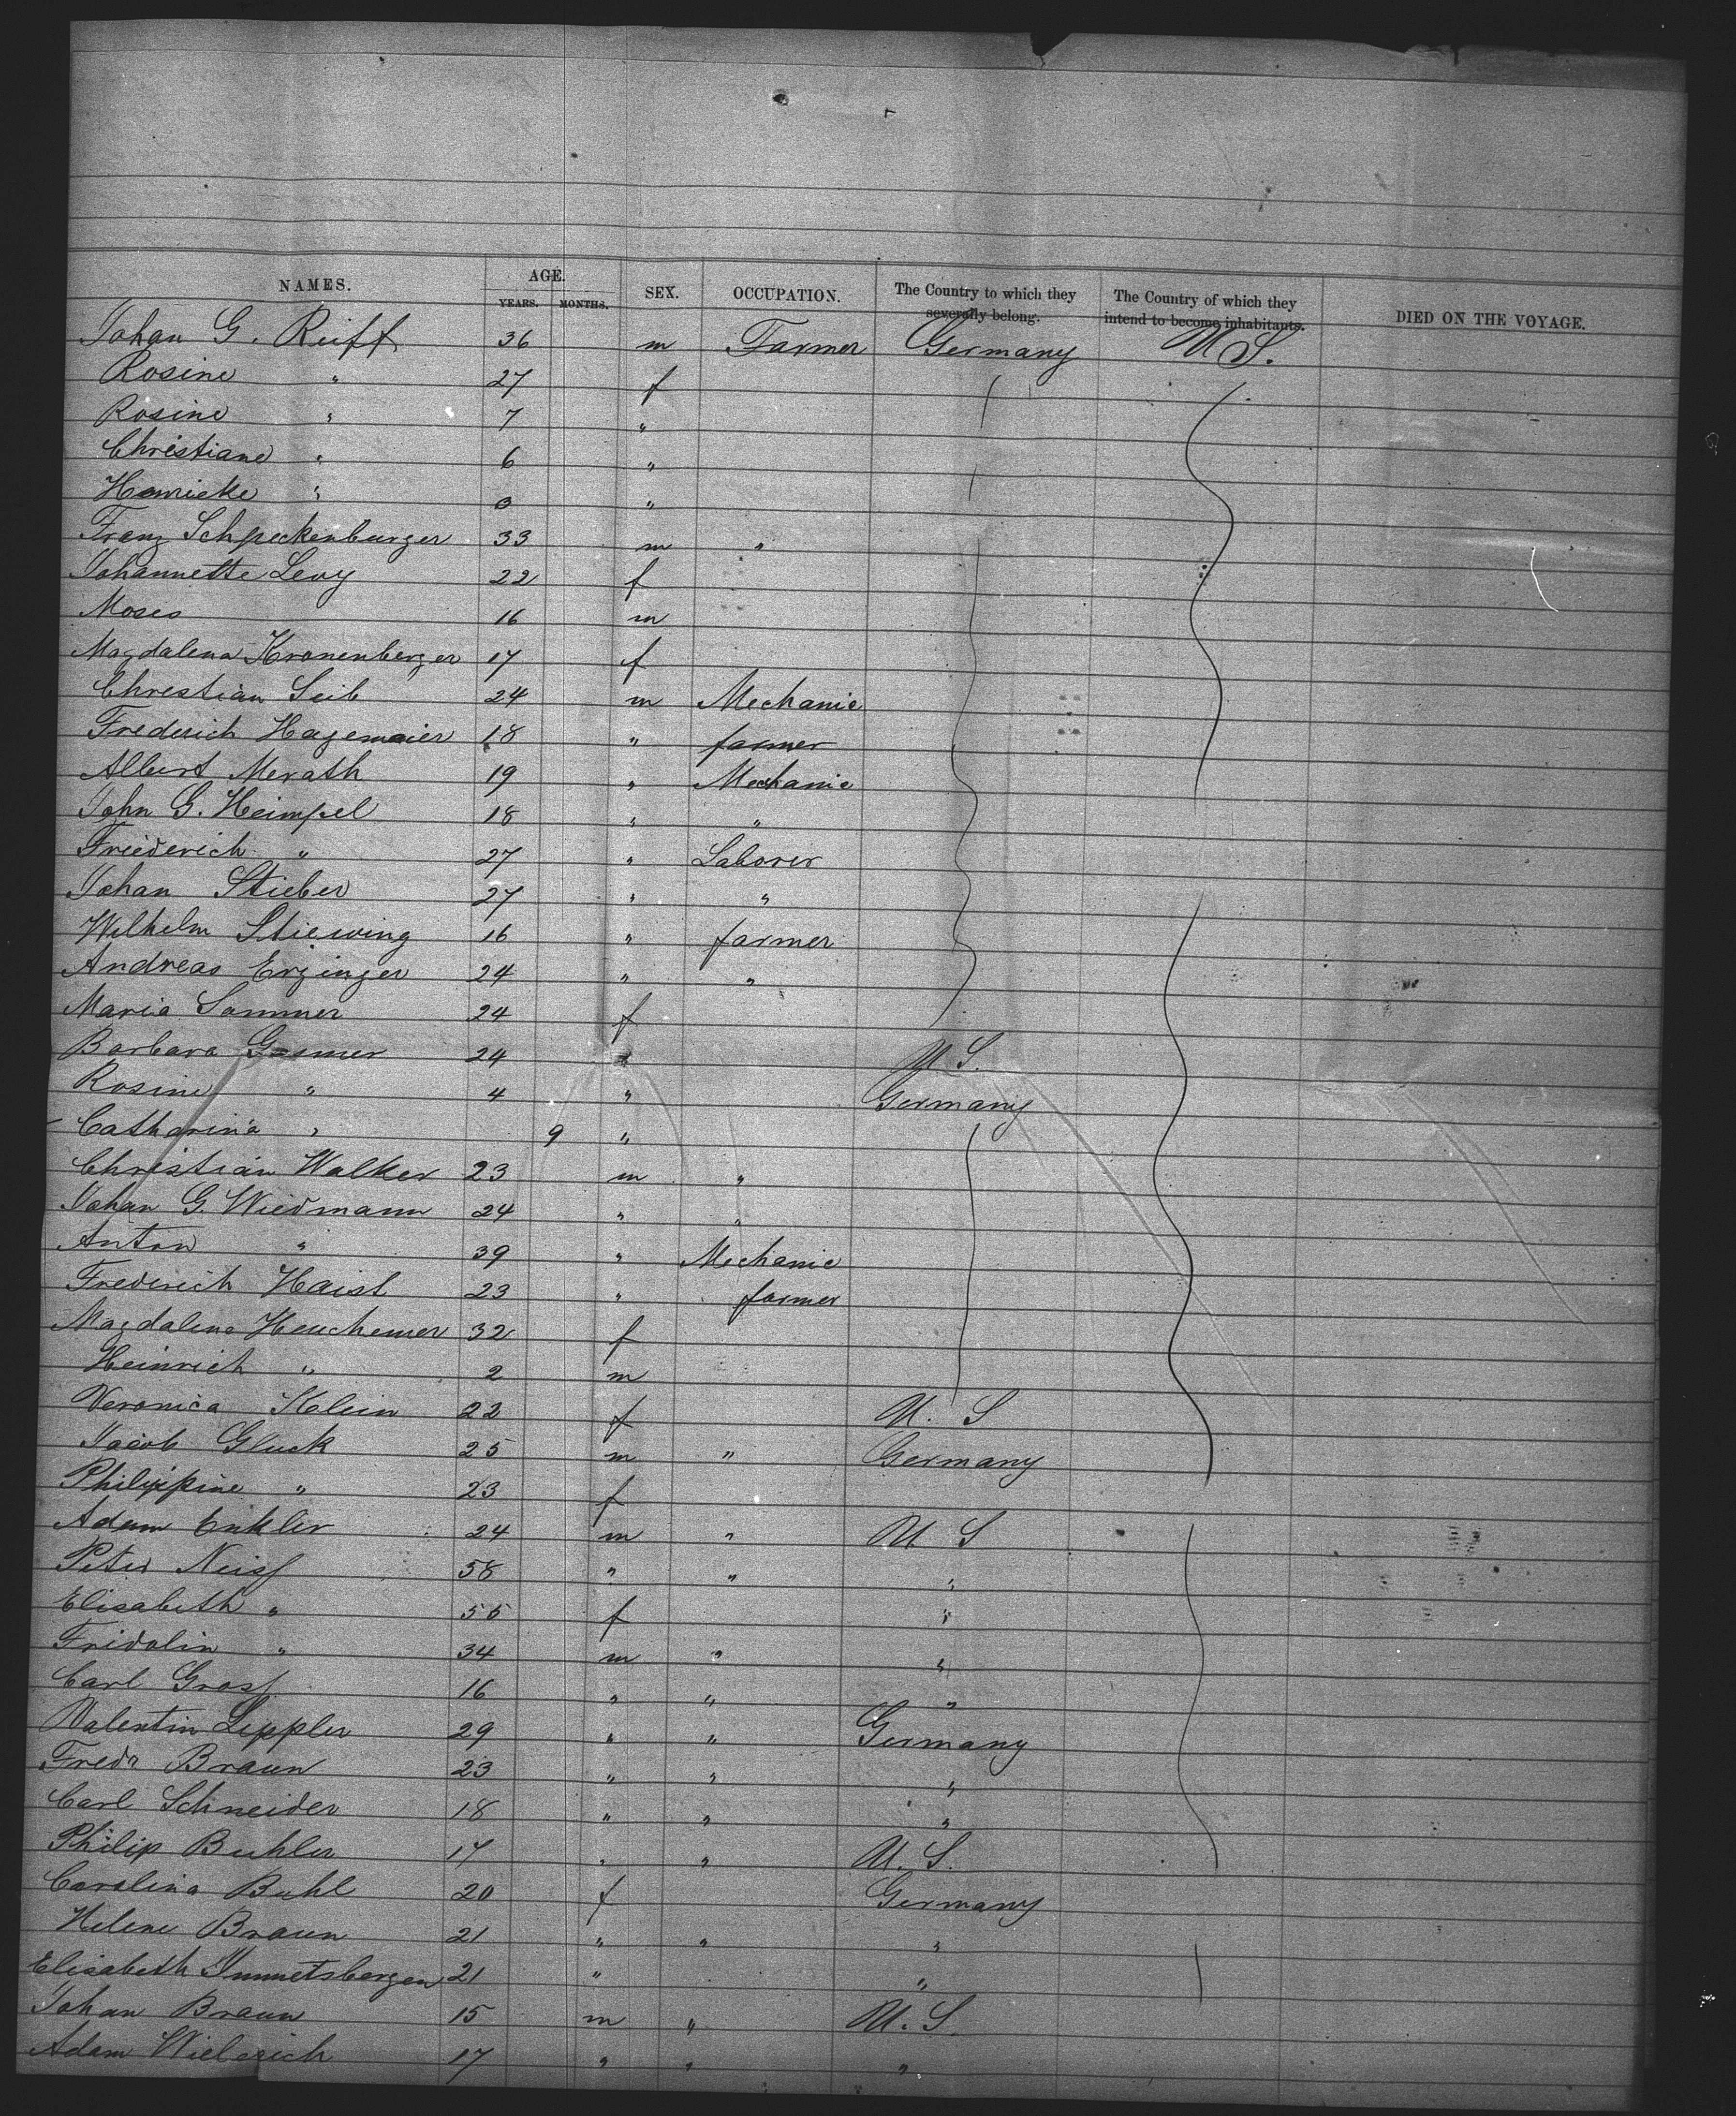 NAMES. AGE. YEARS. MONTHS. SEX. OCCUPATION. The Country to which they severally belong. The Country of which they intend to become inhabitants. DIED ON THE VOYAGE.
Johan G. Reiff 36 m Farmer Germany U S.
Rosine " 27 f
Rosine " 7 "
Christiane " 6 "
" "
Franz Schpeckenburger 33 m "
Johannette Levy 22 f
Moses 16 m
Magdalena Kronenberger 17 f
Christian Seib 24 m Mechanic
Frederich Hagemaier 18 " farmer
Albert Merath 19 " Mechanic
John G. Heimpel 18 " "
Friederich " 27 " Laborer
Johan Stieber 27 " "
Wilhelm Stiewing 16 " farmer
Andreas Erzinger 24 " "
Maria Sommer 24 f
Barbara 24 " U S.
Rosine " 4 " Germany
Catharina " 9 "
Christian Walker 23 m "
Johan G. Wiedmann 24 " "
Anton " 39 " Mechanic
Frederich Haist 23 " farmer
Magdalena Heuchemer 32 f
Heinrich " 2 m
Veronica Klein 22 f U. S
Jacob Gluck 25 m " Germany
Philippine " 23 f
Adam Enkler 24 m " U S
Peter Neiss 58 " " "
Elisabeth " 55 f "
Fridolin " 34 m " "
Carl Gross 16 " " "
Valentin Leppler 29 " " Germany
Fredr Braun 23 " " "
Carl Schneider 18 " " "
Philip Buhler 17 " " U. S.
Carolina Buhl 20 f Germany
Helene Braun 21 " " "
Elisabeth 21 " "
Johan Braun 15 m " U. S.
Adam 17 " " "